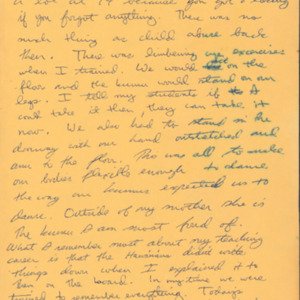 a lot at it because you got a
if you forgot anything. There was no
such thing as child abuse back
then. There was limbering up exercises
when I trained. We would on the
floor and the kumu would stand on our
legs. I tell my students if I
could take it then, they can take it
now. We also had to stand in the
doorway with our hand outstretched and
arm to the floor. This was all to make
our bodies flexible enough to dance
the way our kumus expected us to
dance. Outside of my mother she is
the kumu I am most fond of.
What I remember most about my teaching
career is that the Hawaiians did wrote
things down when I explained it to
them on the board. In my time we were
trained to remember everything. Today